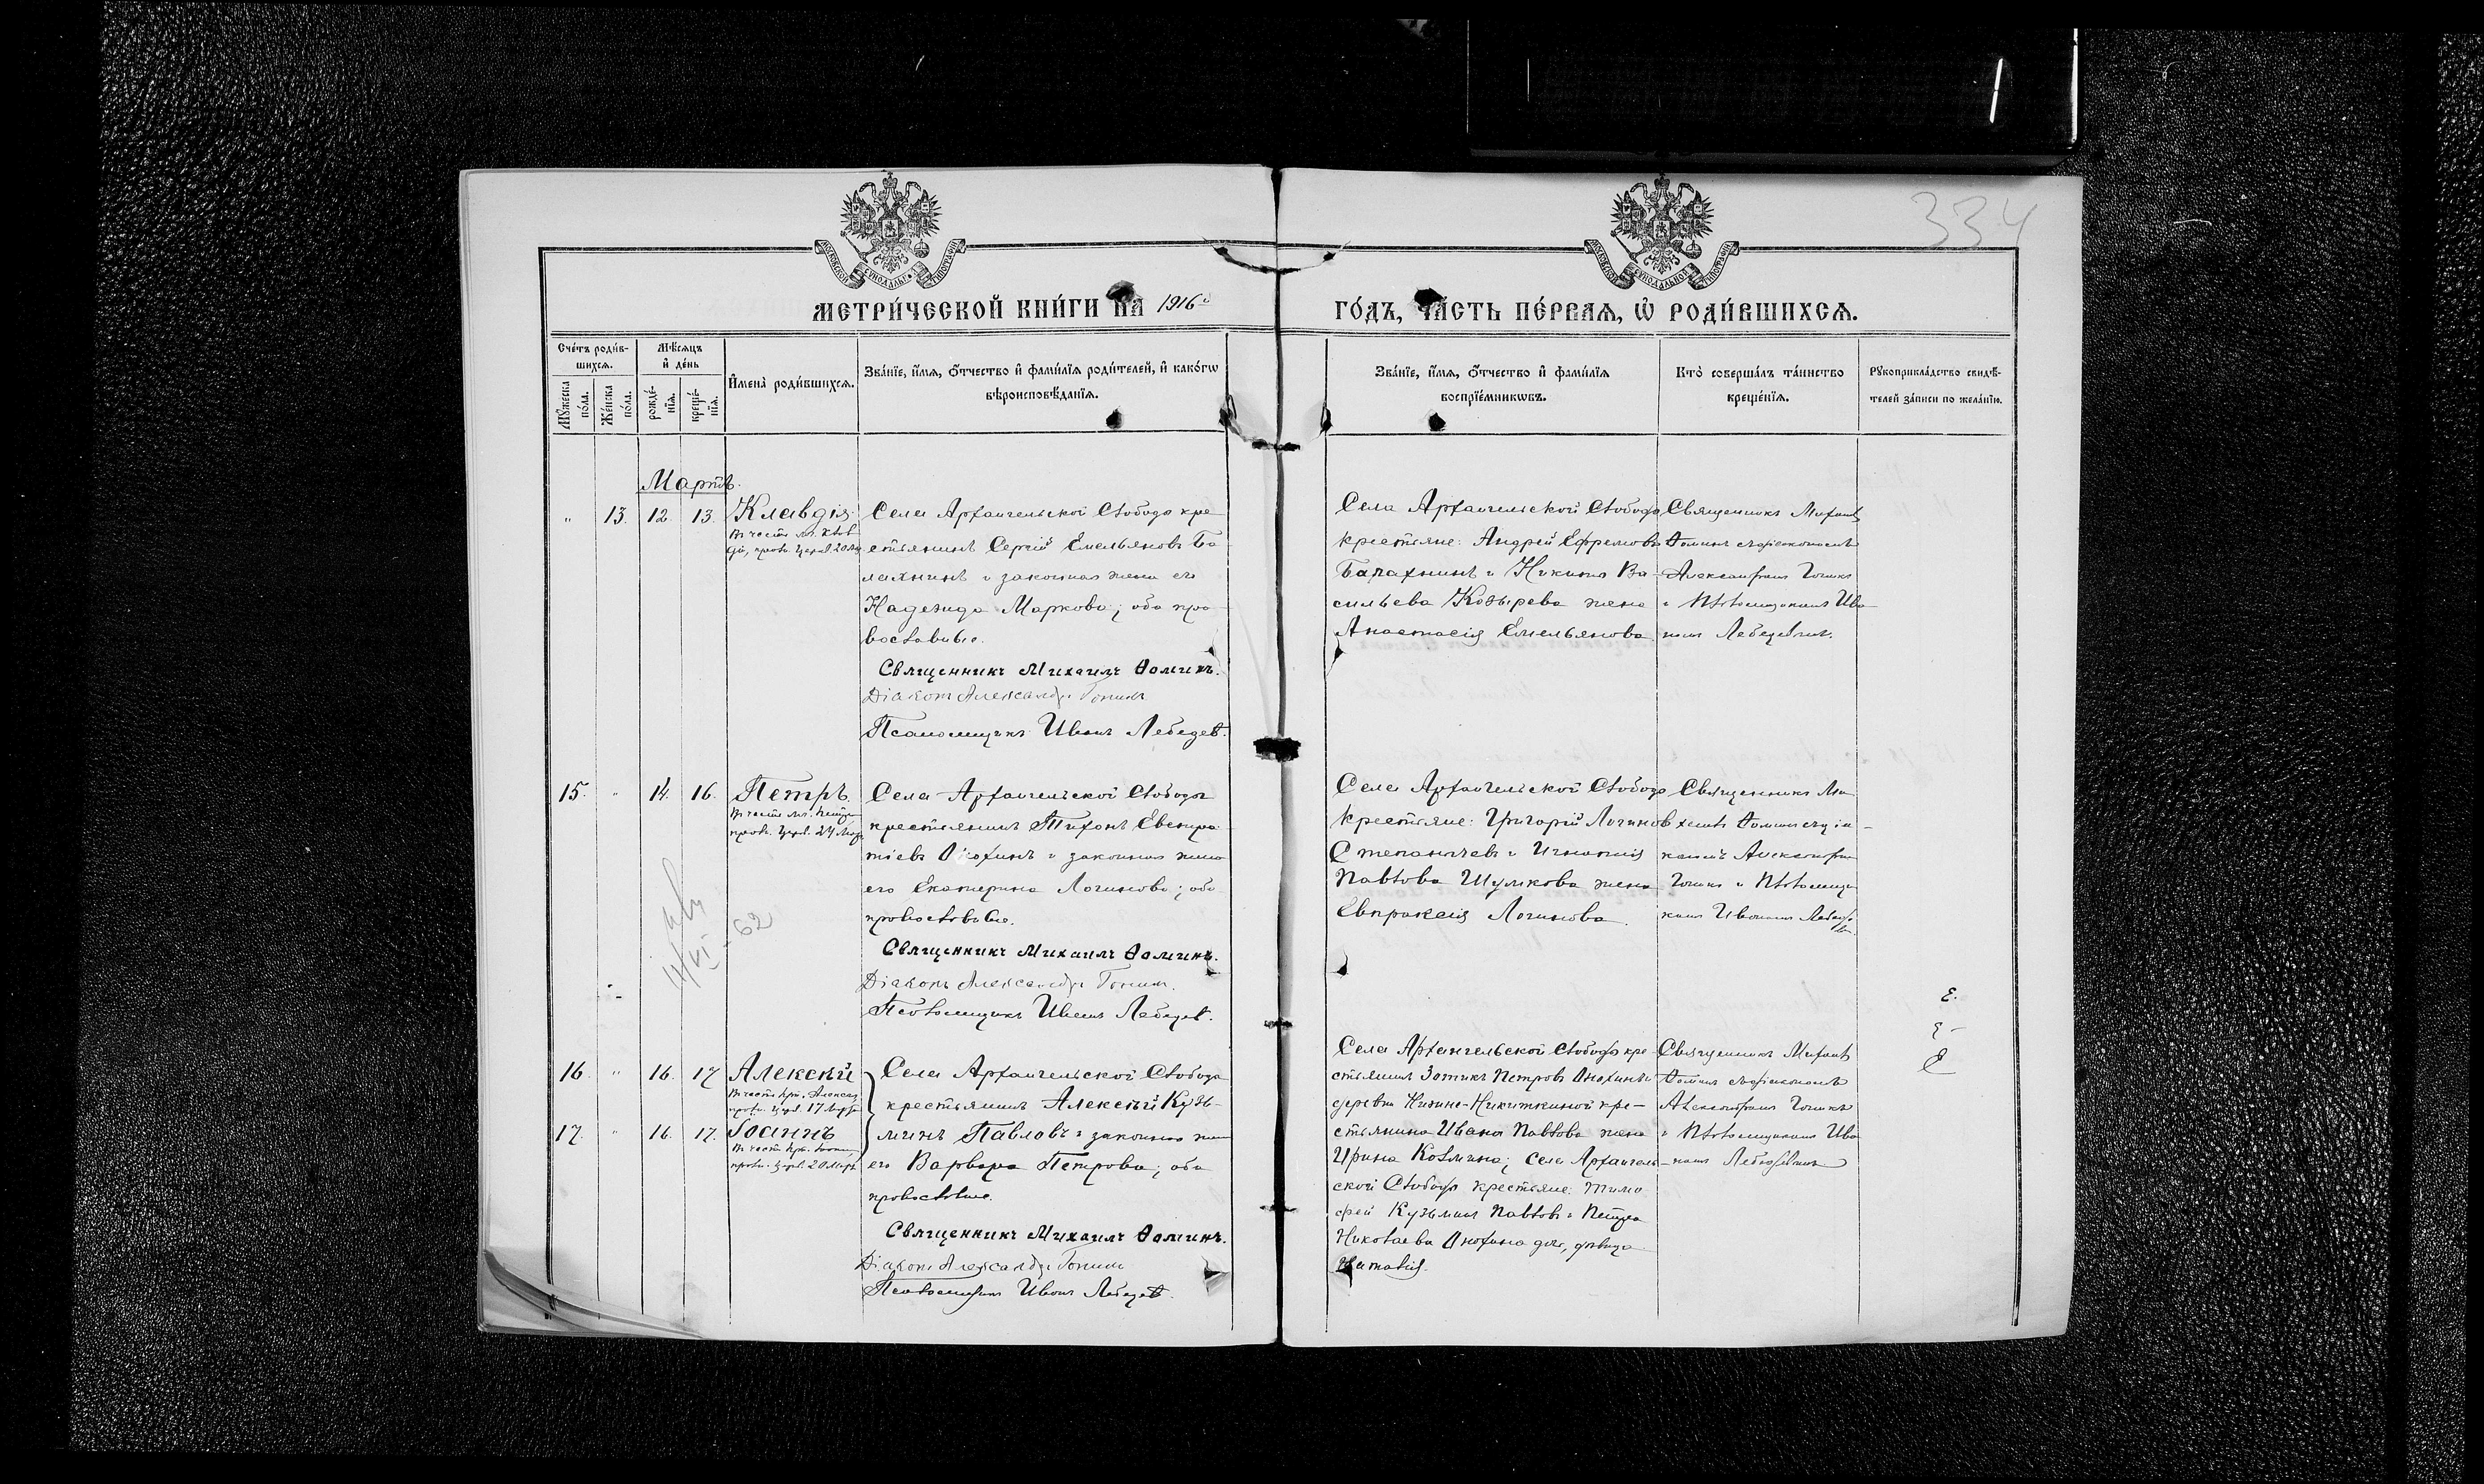 334
МОСКОВСКОЙ СѴНОДАЛЬН ТИПОГРАФІИ
МОСКОВСКОЙ СѴНОДАЛЬНОЙ ТИПОГРАФІИ
МЕТРИ́ЧЕСКОЙ КНИ́ГИ НА 1916й
ГО́ДЪ, ЧА́СТЬ ПЕ́РВАѦ, Ѡ҆ РОДИ́ВШИХСѦ.
Сче́тъ роди́вшихсѧ.
Мꙋ́жеска по́ла.
Же́нска по́ла.
Мѣ́сѧцъ и҆ де́нь
рожде́нїѧ.
креще́нїѧ.
И҆мена̀ роди́вшихсѧ.
Зва́нїе, и҆́мѧ, ѻ҆́тчество и҆ фами́лїѧ роди́телей, и҆ како́гѡ
вѣроисповѣ́данїѧ.
Зва́нїе, и҆́мѧ, ѻ҆́тчество и҆ фами́лїѧ
воспрїе́мникѡвъ.
Кто̀ соверша́лъ та́инство
креще́нїѧ.
Рꙋкоприкла́дство свидѣ́-
телей за́писи по жела́нїю.
Мартъ.
" 13. 12. 13. Клавдія
Села Архангельской Слободы кре-
стьянинъ Сергій Емельяновъ Ба-
лахнинъ и законная жена его
Надежда Маркова; оба пра-
вославные.
Священникъ Михаилъ Ѳоминъ.
Діаконъ Александръ Тонинъ
Псаломщикъ Иванъ Лебедев.
Села Архангельской Слободы
крестьяне: Андрей Ефремовъ
Балахнинъ и Никиты Ва-
сильева Козырева жена
Анастасія Емельянова.
Священникъ Михаилъ
Ѳоминъ съ діакономъ
Александромъ
и Псаломщикомъ Ива-
номъ Лебедевымъ.
15. " 14. 16. Петръ.
правосл. церк. 24 Мар.
Села Архангельской Слободы
крестьянинъ Тихонъ
Анохинъ и законная жена
его Екатерина Логинова; оба
православные.
Священникъ Михаилъ Ѳоминъ.
Діаконъ Александръ Тонинъ.
Псаломщикъ Иванъ Лебедев.
11/VI-62
Села Архангельской Слободы
крестьяне: Григорій Логинов
Степанычевъ и Игнатія
Павлова Шумкова жена
Евпраксія Логинова.
Священникъ Ми-
хаилъ Ѳоминъ съ діа-
кономъ Александромъ
и Псаломщи-
комъ Иваномъ
16. " 16. 17 Алексѣй
17 Мар.
17. " 16. 17. Іоаннъ
20 Мар.
Села Архангельской Слободы
крестьянинъ Алексѣй Кузь-
минъ Павловъ и законная жена
его Варвара Петрова; оба
православные.
Священникъ Михаилъ Ѳоминъ.
Діаконъ Александръ Тонинъ
Псаломщикъ Иванъ Лебедев.
Села Архангельской Слободы кре-
стьянинъ Зотикъ Петровъ Анохинъ и
деревни Нижне-Никиткиной кре-
стьянина Ивана Павлова жена
Ирина Козмина; села Архангель-
ской Слободы крестьяне: Тимо-
фей Кузьминъ Павловъ и Петра
Николаева Анохина дочь, дѣвица
Наталія.
Священникъ Михаилъ
Ѳоминъ съ діакономъ
Александромъ
и Псаломщикомъ Ива-
номъ Лебедевымъ